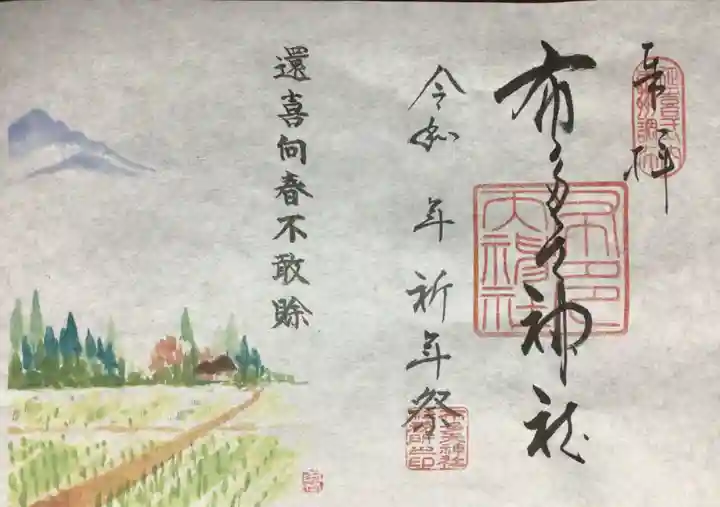 奉拝
布多天神社
令和　年 祈年祭
還喜向春不敢賒